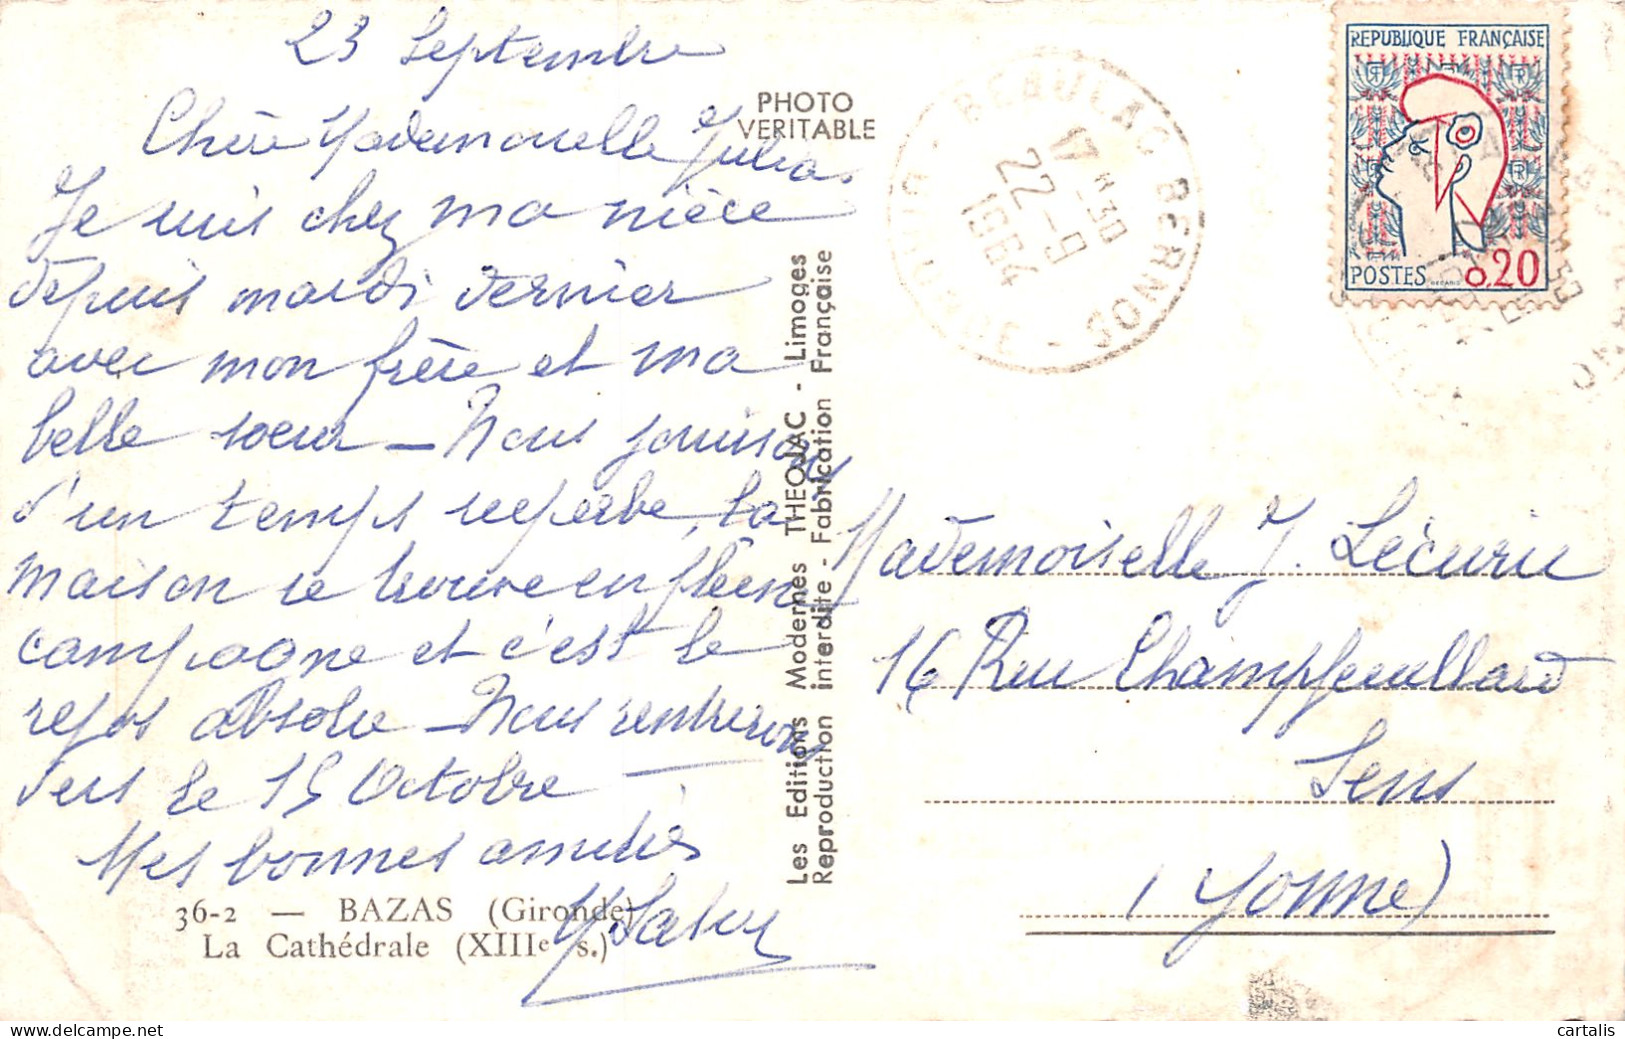 23 Septembre
Chère Mademoiselle Julia.
Je suis chez ma nièce
depuis mardi dernier
avec mon frère et ma
belle soeur – Nous jouissons
d'un temps superbe, la
maison se trouve en pleine
campagne et c'est le
repos absolu – Nous rentrerons
vers le 15 Octobre –
Mes bonnes amitiés
36-2 — BAZAS (Gironde)
La Cathédrale (XIIIe s.)
PHOTO
VERITABLE
Les Editions Modernes THEOJAC - Limoges
Reproduction interdite - Fabrication Française
BEAULAC BERNOS
17 H 30
22 - 9
1964
REPUBLIQUE FRANÇAISE
POSTES 0,20
Mademoiselle J. Lécurie
16 Rue Champfeuillard
Sens
(Yonne)
cartalis